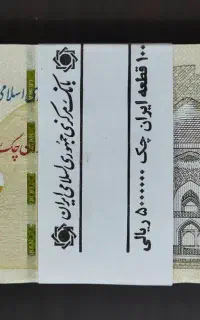 بانک مرکزی جمهوری اسلامی ایران
۱۰۰ قطعه ایران چک ۵۰۰۰۰۰۰ ریالی
اسلامی
چک